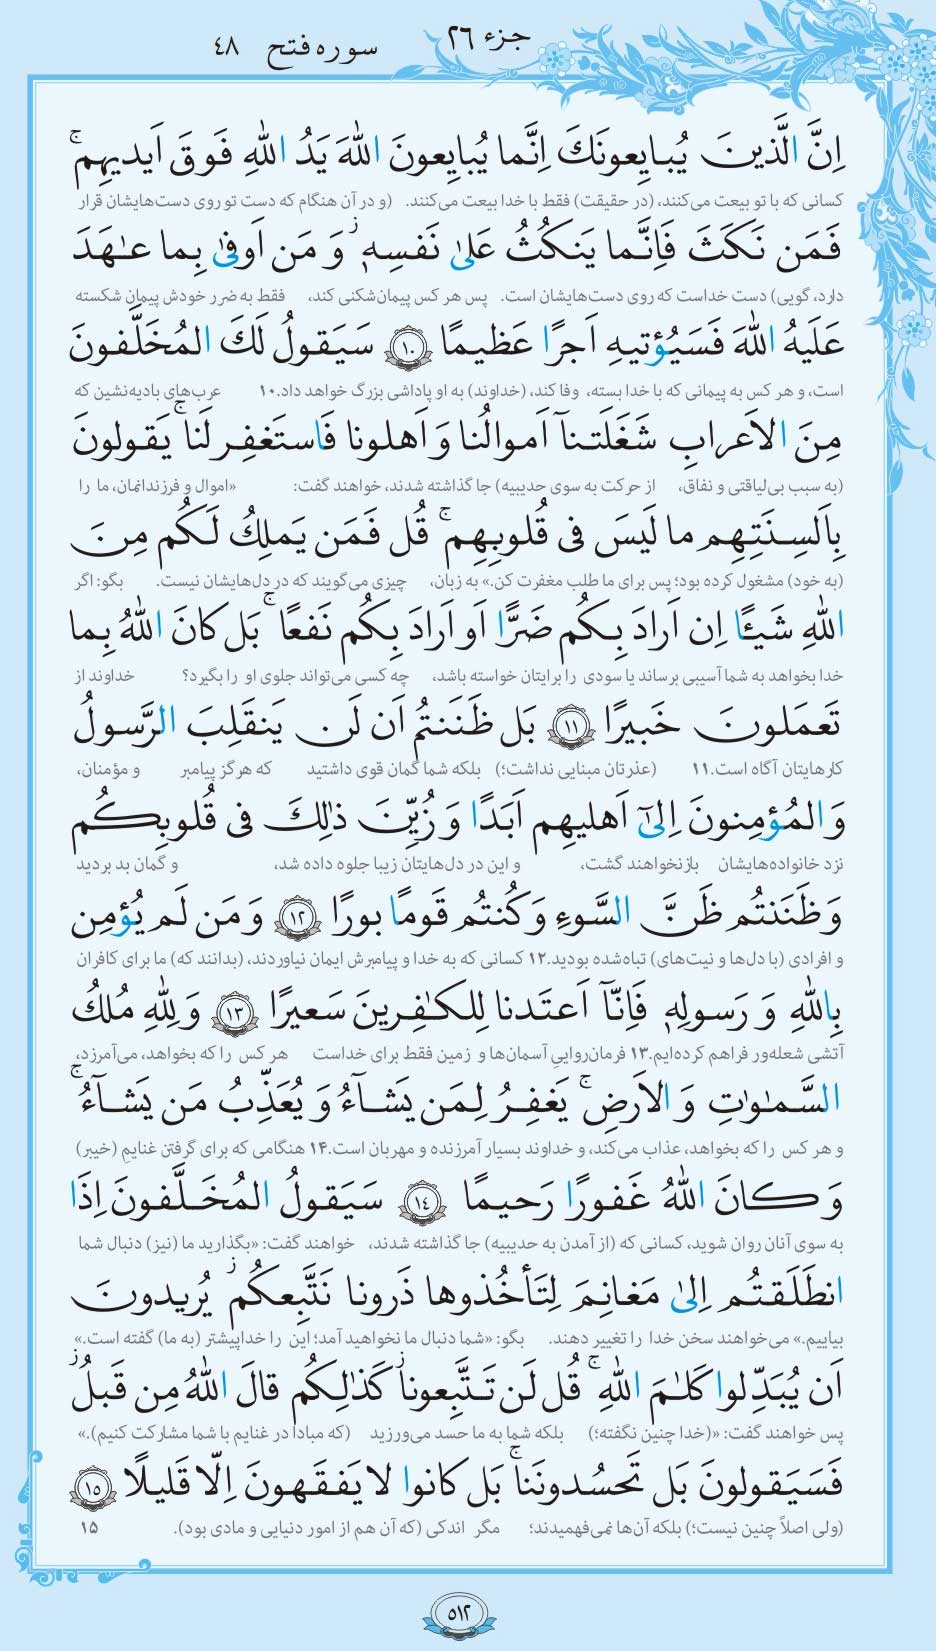 جزء ۲۶
سوره فتح ۴۸
اِنَّ الَّذينَ يُبايِعونَكَ اِنَّما يُبايِعونَ اللّٰهَ يَدُ اللّٰهِ فَوقَ اَيديهِم ۚ
کسانی که با تو بیعت می‌کنند، (در حقیقت) فقط با خدا بیعت می‌کنند. (و در آن هنگام که دست تو روی دست‌هایشان قرار
فَمَن نَكَثَ فَاِنَّما يَنكُثُ عَلىٰ نَفسِهٖ ۖ وَ مَن اَوفىٰ بِما عـٰهَدَ
دارد، گویی) دست خداست که روی دست‌هایشان است. پس هر کس پیمان‌شکنی کند، فقط به ضرر خودش پیمان شکسته
عَلَيهُ اللّٰهَ فَسَيُؤتيهِ اَجرًا عَظيمًا ١٠ سَيَقولُ لَكَ المُخَلَّفونَ
است، و هر کس به پیمانی که با خدا بسته، وفا کند، (خداوند) به او پاداشی بزرگ خواهد داد.۱۰ عرب‌های بادیه‌نشین که
مِنَ الاَعرابِ شَغَلَتنآ اَموالُنا وَ اَهلونا فَاستَغفِر لَنا ۚ يَقولونَ
(به سبب بی‌لیاقتی و نفاق، از حرکت به سوی حدیبیه) جا گذاشته شدند، خواهند گفت: «اموال و فرزندانمان، ما را
بِاَلسِنَتِهِم ما لَيسَ فى قُلوبِهِم ۚ قُل فَمَن يَملِكُ لَكُم مِنَ
(به خود) مشغول کرده بود؛ پس برای ما طلب مغفرت کن.» به زبان، چیزی می‌گویند که در دل‌هایشان نیست. بگو: اگر
اللّٰهِ شَيئًا اِن اَرادَ بِكُم ضَرًّا اَو اَرادَ بِكُم نَفعًا ۚ بَل كانَ اللّٰهُ بِما
خدا بخواهد به شما آسیبی برساند یا سودی را برایتان خواسته باشد، چه کسی می‌تواند جلوی او را بگیرد؟ خداوند از
تَعمَلونَ خَبيرًا ١١ بَل ظَنَنتُم اَن لَن يَنقَلِبَ الرَّسولُ
کارهایتان آگاه است.۱۱ (عذرتان مبنایی نداشت؛) بلکه شما گمان قوی داشتید که هرگز پیامبر و مؤمنان،
وَ المُؤمِنونَ اِلىٰٓ اَهليهِم اَبَدًا وَ زُيِّنَ ذٰلِكَ فى قُلوبِكُم
نزد خانواده‌هایشان بازنخواهند گشت، و این در دل‌هایتان زیبا جلوه داده شد، و گمان بد بردید
وَ ظَنَنتُم ظَنَّ السَّوءِ وَ كُنتُم قَومًا بورًا ١٢ وَ مَن لَم يُؤمِن
و افرادی (با دل‌ها و نیت‌های) تباه‌شده بودید.۱۲ کسانی که به خدا و پیامبرش ایمان نیاوردند، (بدانند که) ما برای کافران
بِاللّٰهِ وَ رَسولِهٖ فَاِنّآ اَعتَدنا لِلكـٰفِرينَ سَعيرًا ١٣ وَ لِلّٰهِ مُلكُ
آتشی شعله‌ور فراهم کرده‌ایم.۱۳ فرمان‌رواییِ آسمان‌ها و زمین فقط برای خداست هر کس را که بخواهد، می‌آمرزد،
السَّمـٰوٰتِ وَ الاَرضِ ۚ يَغفِرُ لِمَن يَشآءُ وَ يُعَذِّبُ مَن يَشآءُ ۚ
و هر کس را که بخواهد، عذاب می‌کند، و خداوند بسیار آمرزنده و مهربان است.۱۴ هنگامی که برای گرفتن غنایمِ (خیبر)
وَ كانَ اللّٰهُ غَفورًا رَحيمًا ١٤ سَيَقولُ المُخَلَّفونَ اِذَا
به سوی آنان روان شوید، کسانی که (از آمدن به حدیبیه) جا گذاشته شدند، خواهند گفت: «بگذارید ما (نیز) دنبال شما
انطَلَقتُم اِلىٰ مَغانِمَ لِتَأخُذوها ذَرونا نَتَّبِعكُم ۖ يُريدونَ
بیاییم.» می‌خواهند سخن خدا را تغییر دهند. بگو: «شما دنبال ما نخواهید آمد؛ این را خدا پیشتر (به ما) گفته است.»
اَن يُبَدِّلوا كَلـٰمَ اللّٰهِ ۚ قُل لَن تَتَّبِعونا كَذٰلِكُم قالَ اللّٰهُ مِن قَبلُ ۖ
پس خواهند گفت: «(خدا چنین نگفته؛) بلکه شما به ما حسد می‌ورزید (که مبادا در غنایم با شما مشارکت کنیم).»
فَسَيَقولونَ بَل تَحسُدونَنا ۚ بَل كانوا لا يَفقَهونَ اِلّا قَليلًا ١٥
(ولی اصلاً چنین نیست؛) بلکه آن‌ها نمی‌فهمیدند؛ مگر اندکی (که آن هم از امور دنیایی و مادی بود). ۱۵
۵۱۲